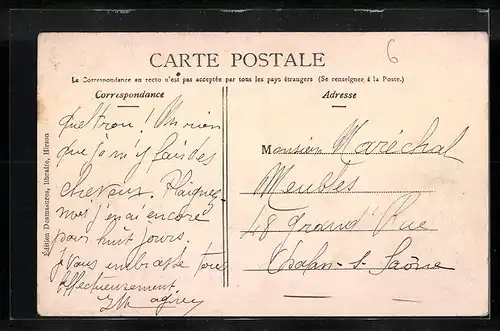 CARTE POSTALE
6
La Correspondance au recto n'est pas acceptée par tous les pays étrangers (Se renseigner à la Poste.)
Correspondance
Adresse
Édition Desmasures, libraire, Hirson
quel trou !
que je m'y fais des
cheveux. Plaignez
moi j'en ai encore
pour huit jours.
Je vous embrasse tous
affectueusement
Monsieur Maréchal
Meubles
48 Grand' Rue
Chalon-s-Saône